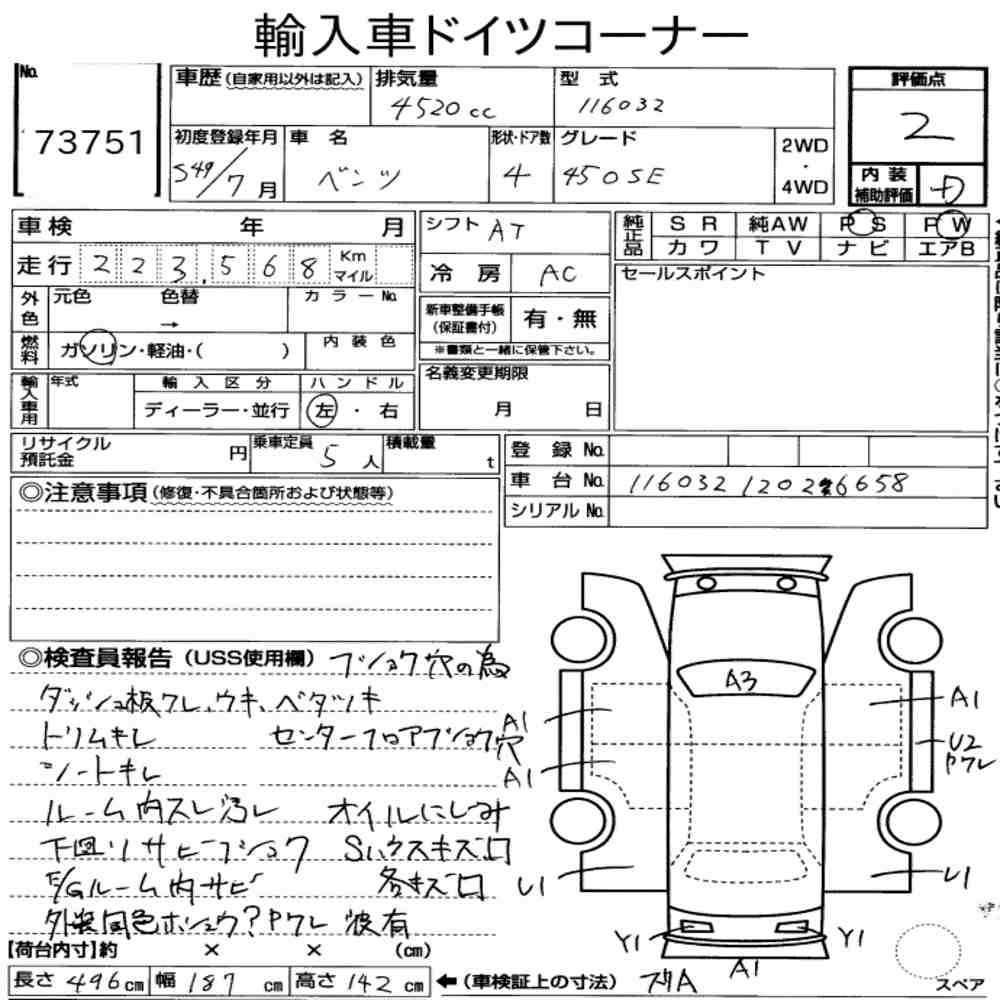 輸入車ドイツコーナー
No. 73751
車歴 (自家用以外は記入) 排気量 4520cc 型 式 116032
初度登録年月 S49/7月 車 名 ベンツ 形状・ドア数 4 グレード 450SE 2WD・4WD
評価点 2
内装補助評価 D
車検 年 月
走行 223,568 Km マイル
外色 元色 色替 → カラーNo.
燃料 ガソリン・軽油・( ) 内装色
輸入車用 年式 輸入区分 ディーラー・並行 ハンドル 左・右
シフト AT
冷 房 AC
新車整備手帳 (保証書付) 有・無
※書類と一緒に保管下さい。
名義変更期限 月 日
純正品 SR 純AW PS PW
カワ TV ナビ エアB
セールスポイント
リサイクル預託金 円 乗車定員 5人 積載量 t
登 録 No.
車 台 No. 116032 12026658
シリアル No.
◎注意事項 (修復・不具合箇所および状態等)
◎検査員報告 (USS使用欄) フショク穴の為
ダッシュ板ワレ、ウキ、ベタツキ
トリムキレ センターフロアフショク穴
シートキレ
ルーム内スレ汚レ オイルにじみ
下回りサビーフショク Sハウスキズ凹
E/Gルーム内サビ 各キズ凹
外装同色ホシュウ?Pワレ 波有
A3
A1
A1
A1
U2
Pワレ
U1
U1
Y1
Y1
A1
スペア
【荷台内寸】約 × × (cm)
長さ 496cm 幅 187cm 高さ 142cm ←(車検証上の寸法)